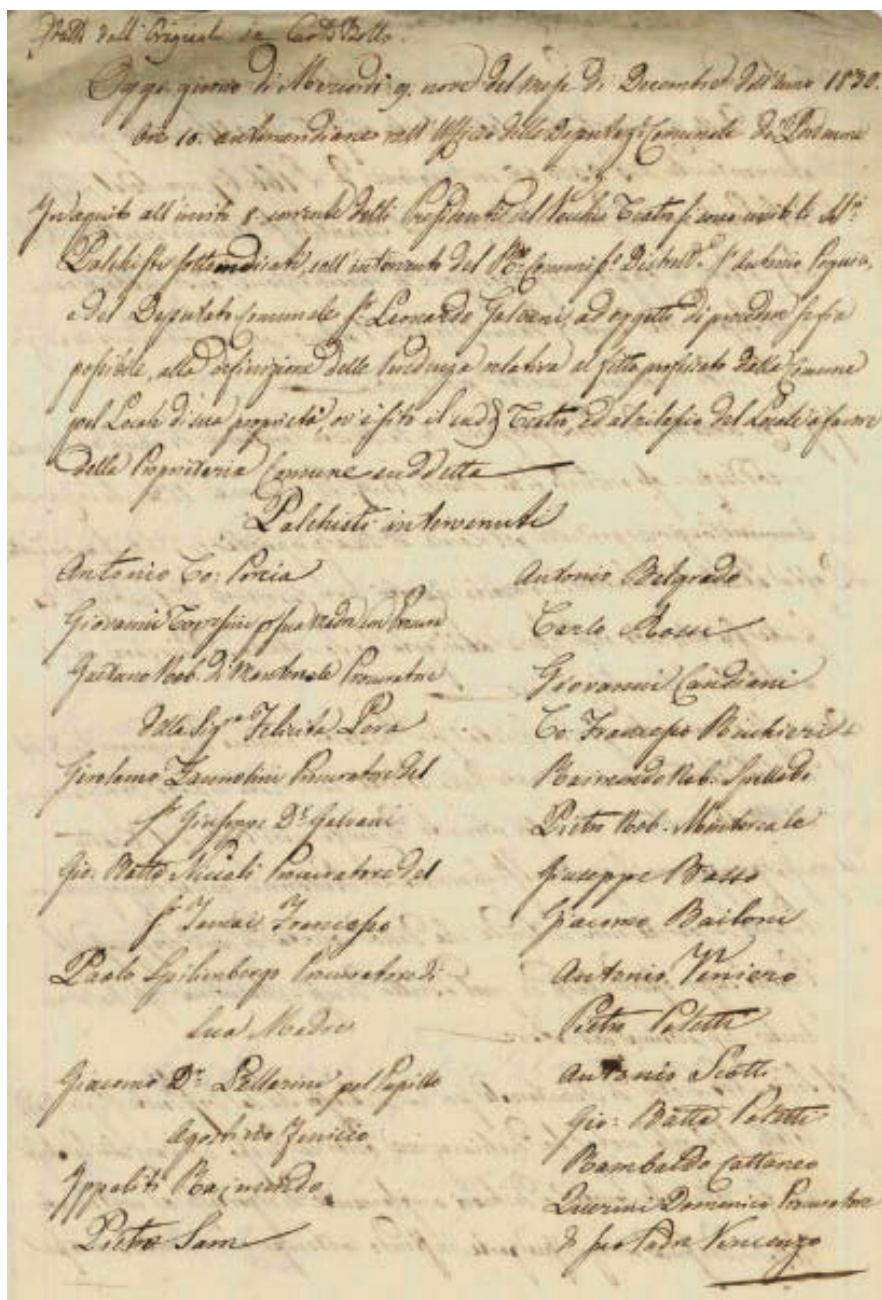 Tratto dall'Originale in Carta Bollo.
Oggi giorno di Mercordi 9. nove del mese di Decembre dell'anno 1830.
ore 10. antimeridiane nell'Ufficio della Deputaz. Comunale di Pordenone
In seguito all'invito 8 corrente delli Presidenti del Vecchio Teatro si sono uniti li
Palchisti sottoindicati, coll'intervento del R. Commiss.o Distrett.e S.r Antonio
e del Deputato Comunale S.r Leonardo Galvani, ad oggetto di procedere se fia
possibile, alla definizione delle Pendenza relativa al fitto professato dalla Comune
pel Locale di sua proprietà, ov'è sito il sud.o Teatro, ed al rilascio del Locale a favore
della Proprietaria Comune suddetta
Palchisti intervenuti
Antonio Co: Porcia
Giovanni p. sua Madre con Procura
Gaetano Nob. di Montereale Procuratore
della Sig.ra Felicita Pera
Girolamo Zannolini Procuratore del
S.r Giuseppe D.r Galvani
Gio: Batta Procuratore del
S.r Francesco
Paolo Spilimbergo Procuratore di
sua Madre
Giacomo D.r Pellarini pel Pupillo
Agostino
Ippoliti Raimondo
Pietro Sam
Antonio Belgrado
Carlo Rossi
Giovanni Candiani
Co: Francesco Richieri
Raimondo Nob. Spelladi
Pietro Nob. Montereale
Giuseppe Brasso
Giacomo Bailoni
Antonio Veniero
Pietro Poletti
Antonio Scotti
Gio: Batta Poletti
Rambaldo Cattaneo
Querini Domenico Procuratore
di suo Padre Vincenzo